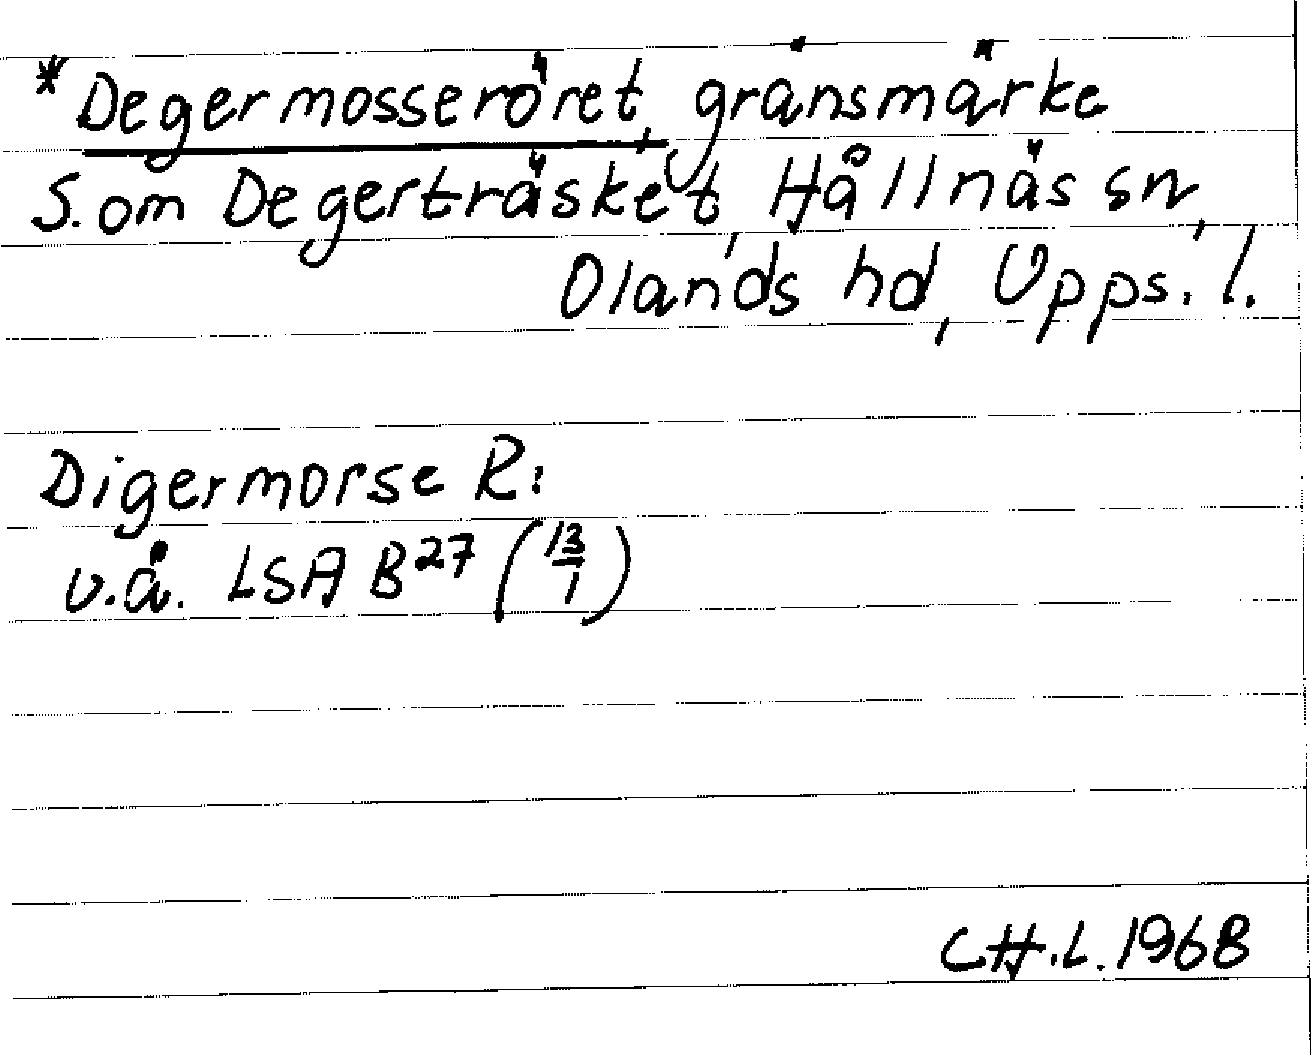 *Degermosseröret, gränsmärke
S. om Degerträsket, Hållnäs sn,
Olands hd, Upps. l.
Digermorse R:
u.å. LSA B27 (13/1)
CH.L. 1968